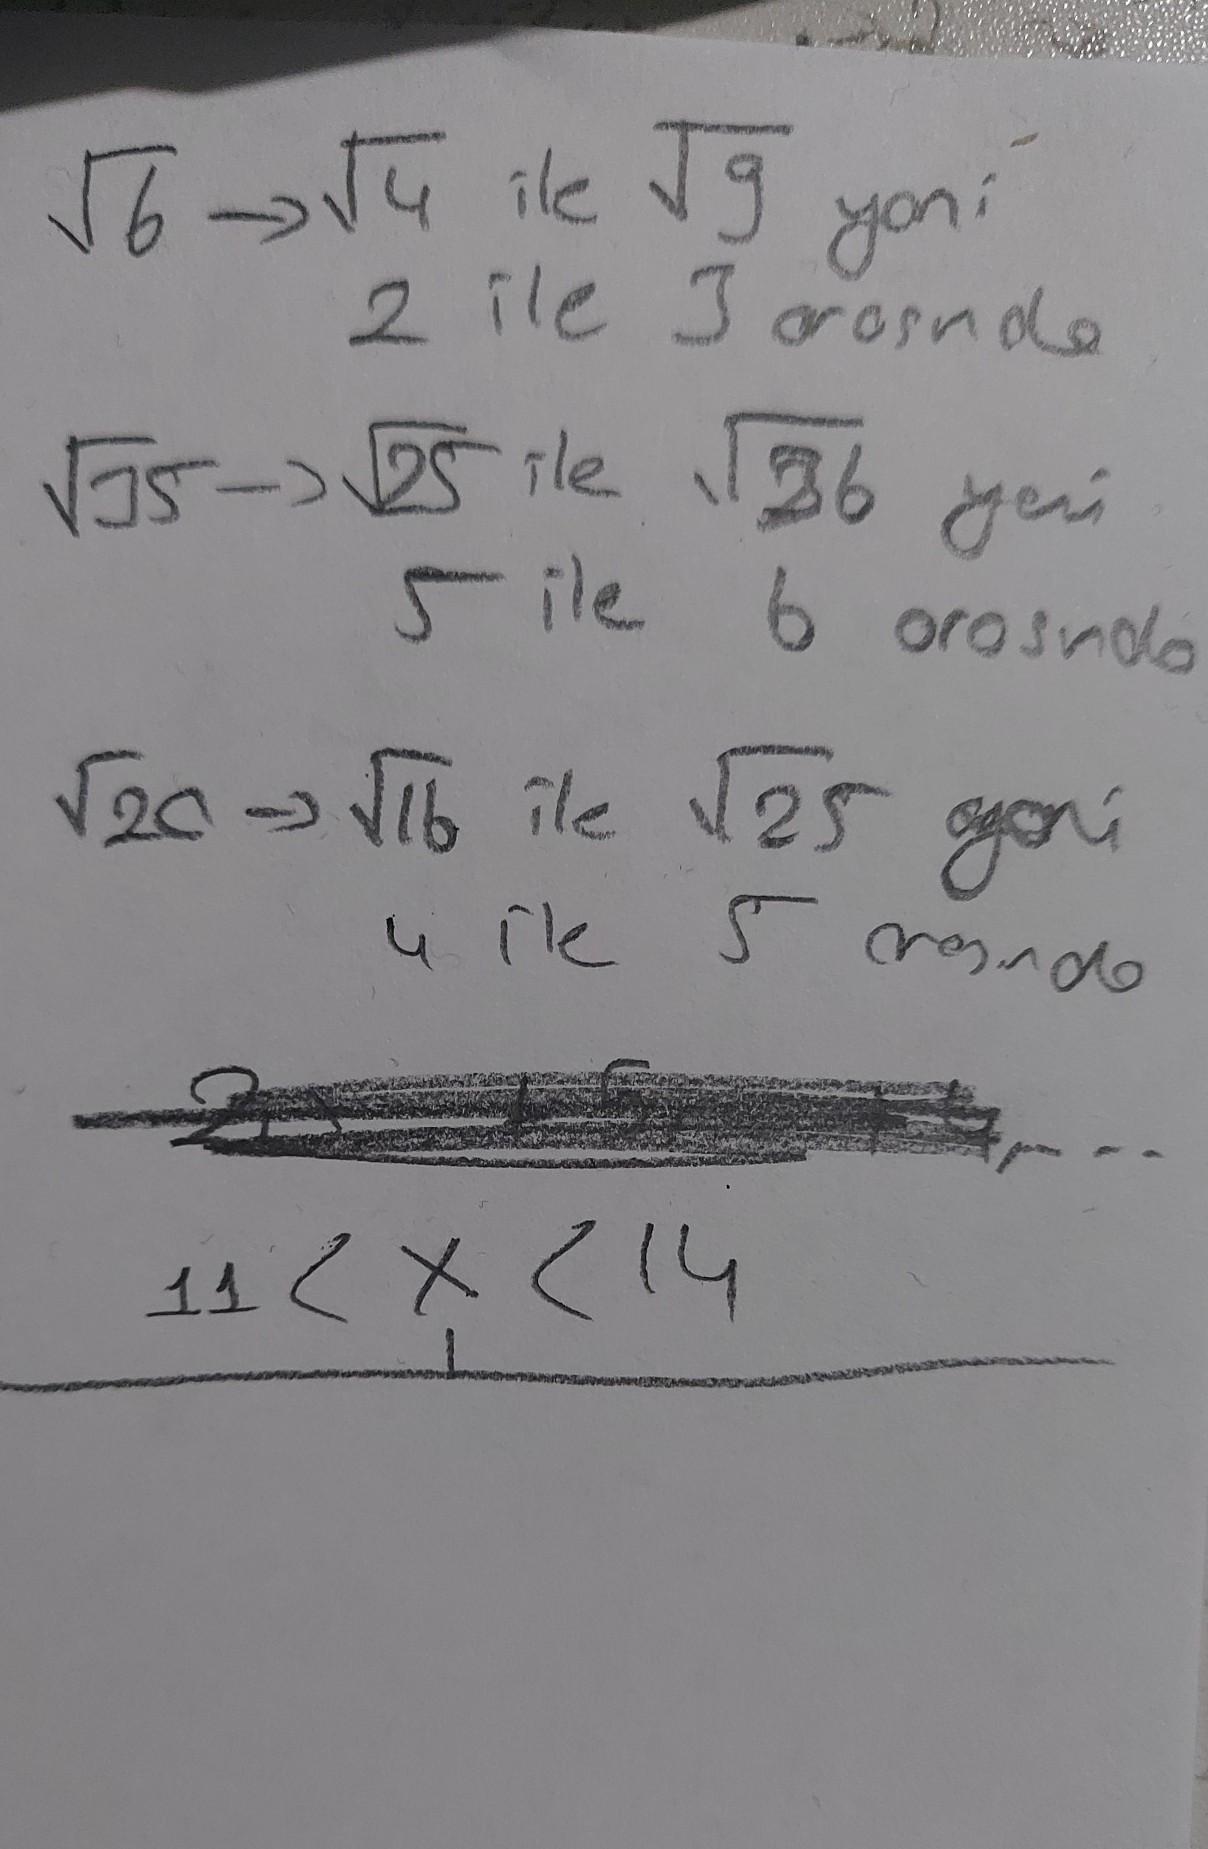 √6 → √4 ile √9 yani
2 ile 3 arasnda
√35 → √25 ile √36 yani
5 ile 6 arasnda
√20 → √16 ile √25 yani
4 ile 5 arasnda
11 < x < 14